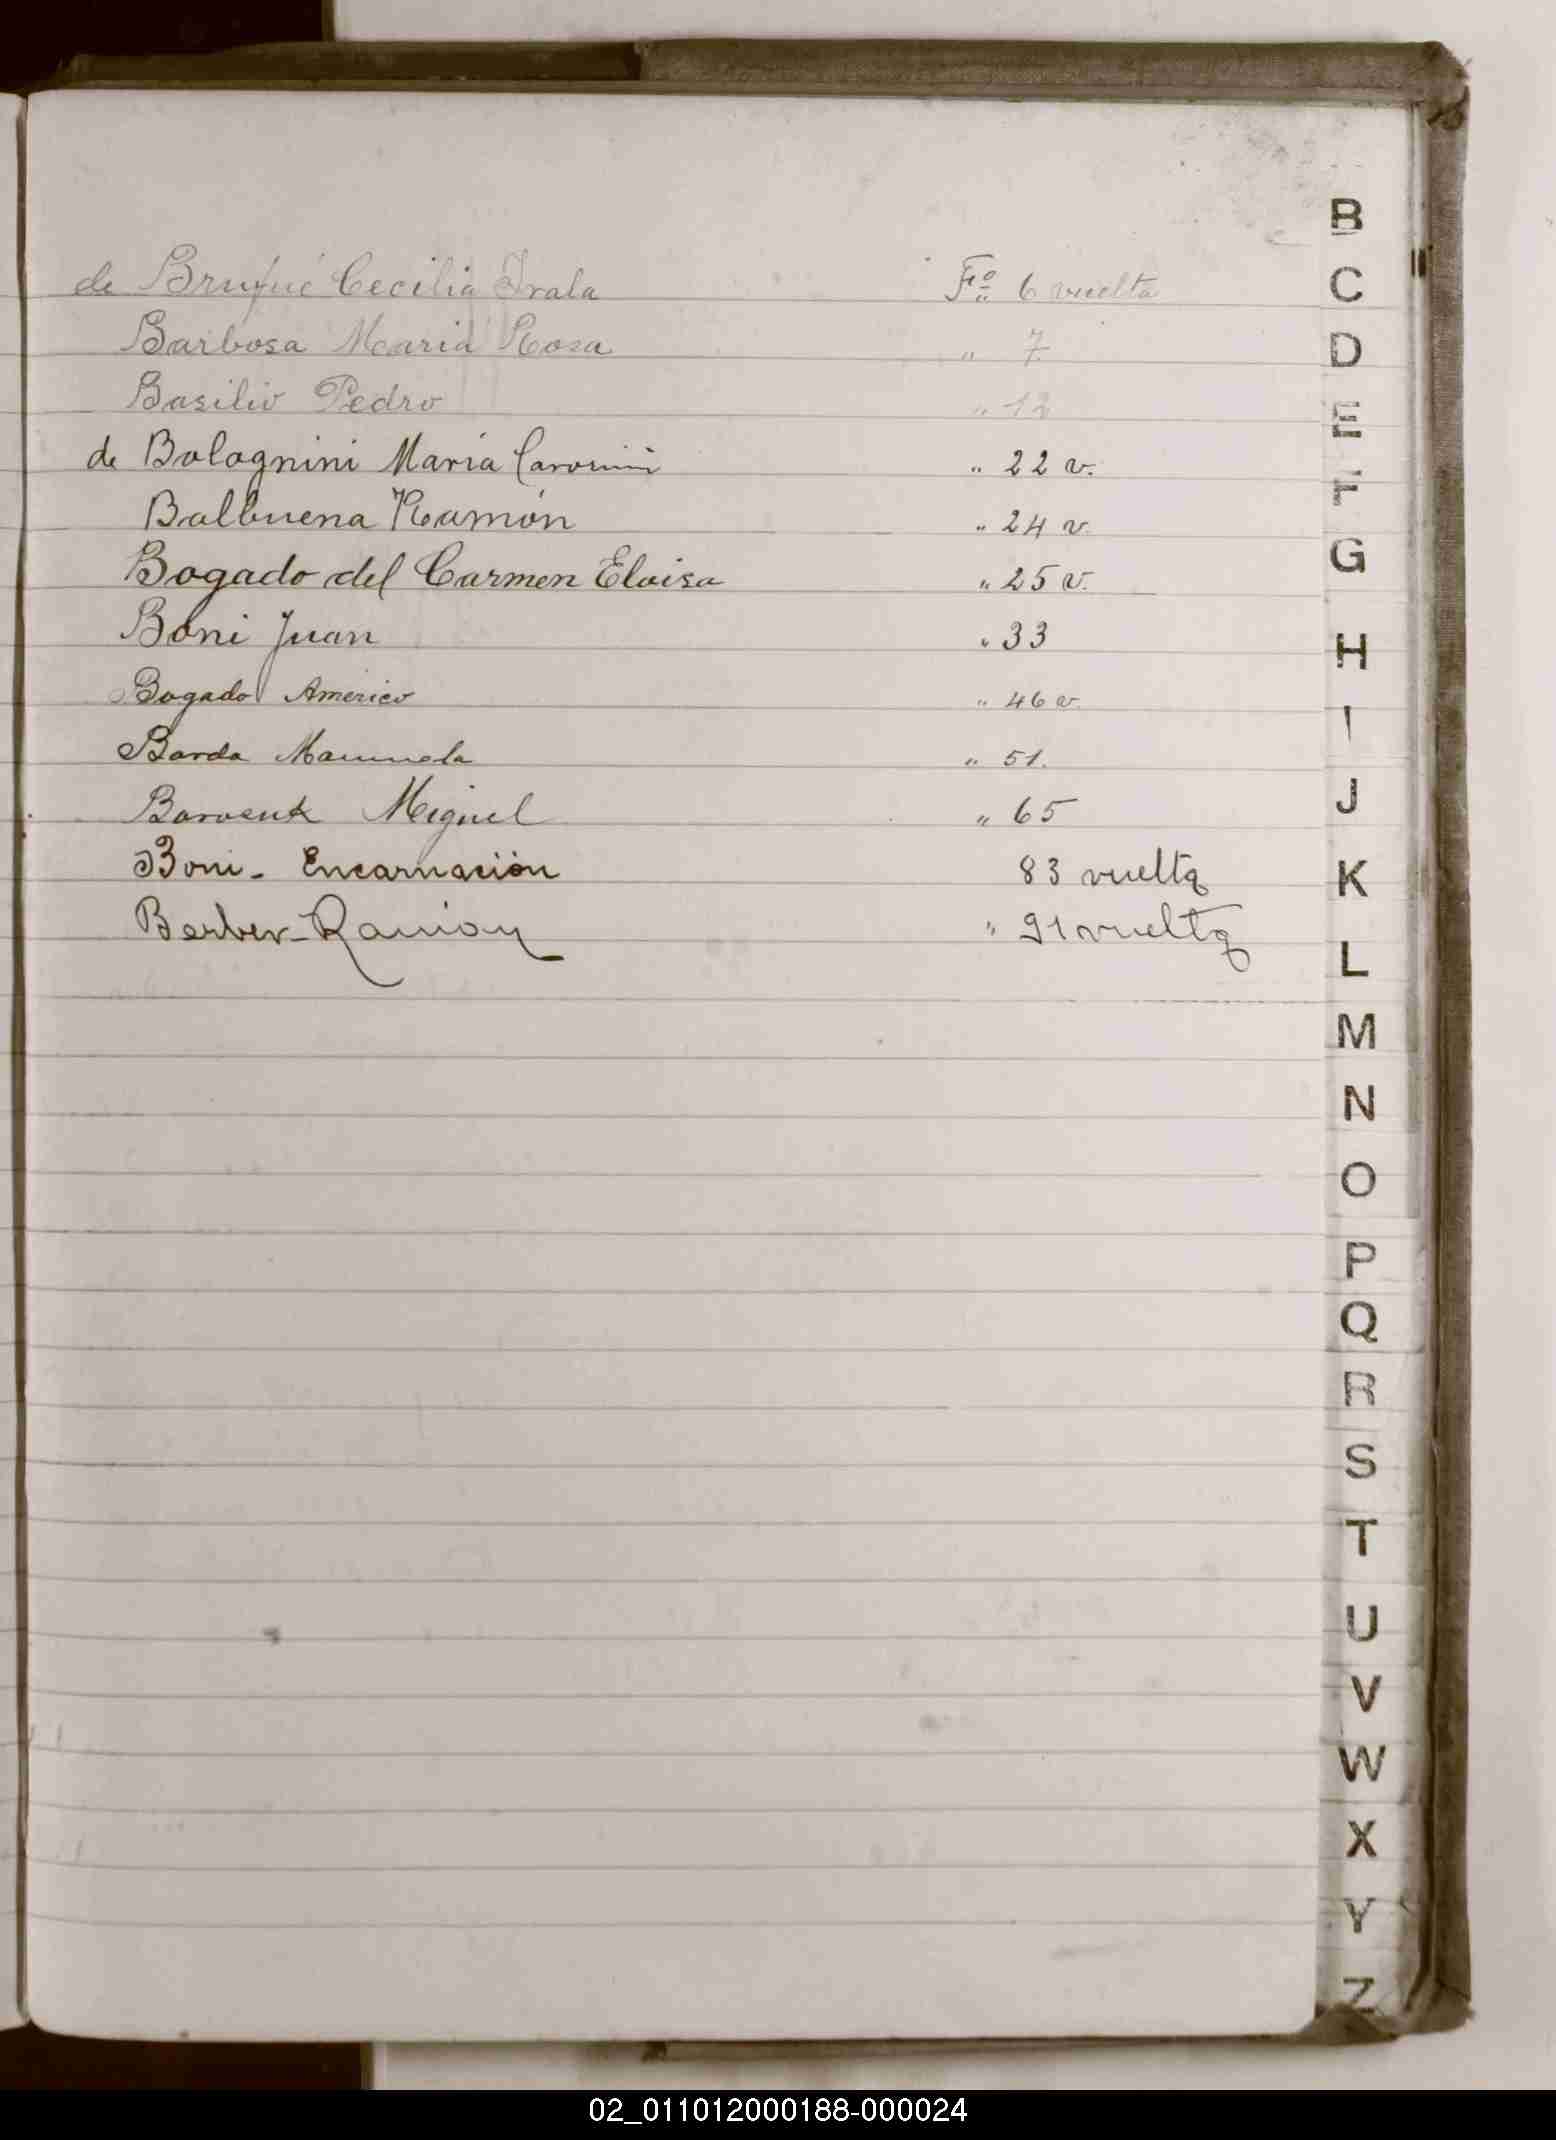 de Brufué Cecilia Irala Fº 6 vuelta
Barbosa Maria Rosa " 7
Basilio Pedro " 12
de Bolognini María " 22 v.
Balbuena Ramón " 24 v.
Bogado del Carmen Eloisa " 25 v.
Boni Juan " 33
Bogado Americo " 46 v.
Barda Manuela " 51.
Miguel " 65
Boni - Encarnación 83 vuelta
Berber - Ramon " 91 vuelta
B
C
D
E
F
G
H
I
J
K
L
M
N
O
P
Q
R
S
T
U
V
W
X
Y
Z
02_011012000188-000024